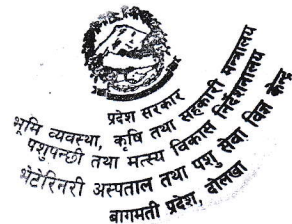 प्रदेश सरकार
भूमि व्यवस्था, कृषि तथा सहकारी मन्त्रालय
पशुपन्छी तथा मत्स्य विकास निर्देशनालय
भेटेरिनरी अस्पताल तथा पशु सेवा विज्ञ केन्द्र
बागमती प्रदेश, दोलखा